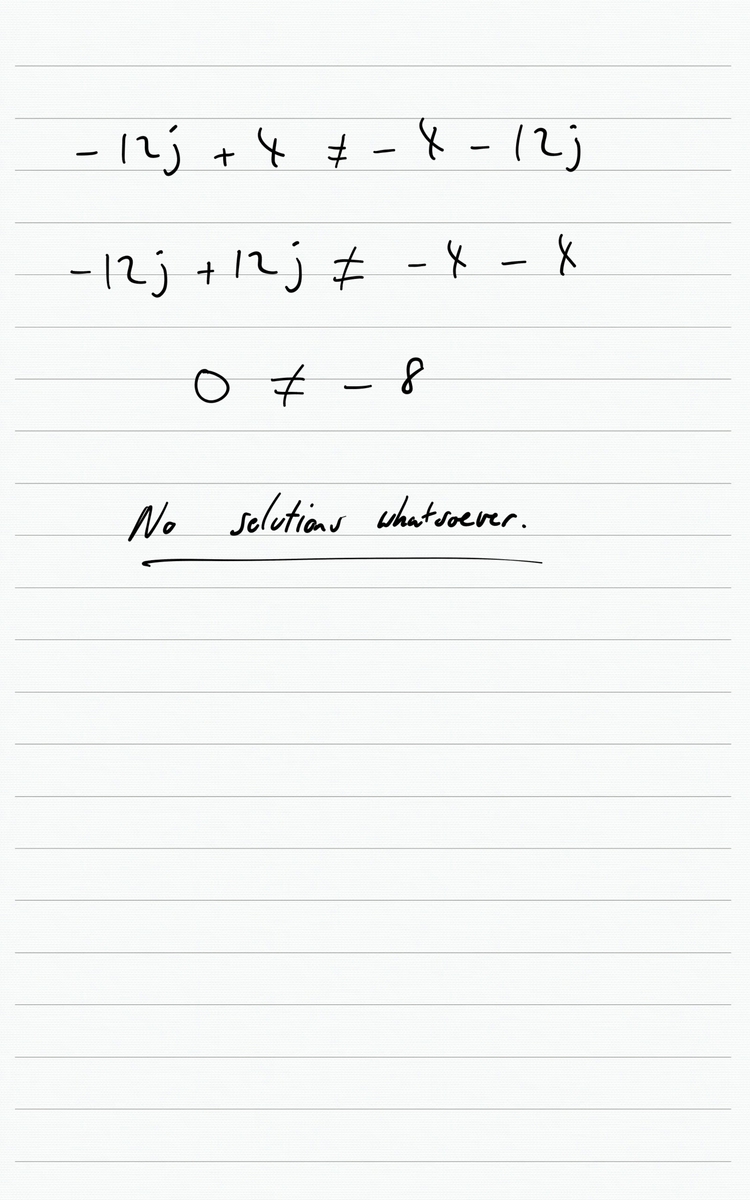 -12j + 4 ≠ - 4 - 12j
-12j + 12j ≠ - 4 - 4
0 ≠ - 8
No solutions whatsoever.